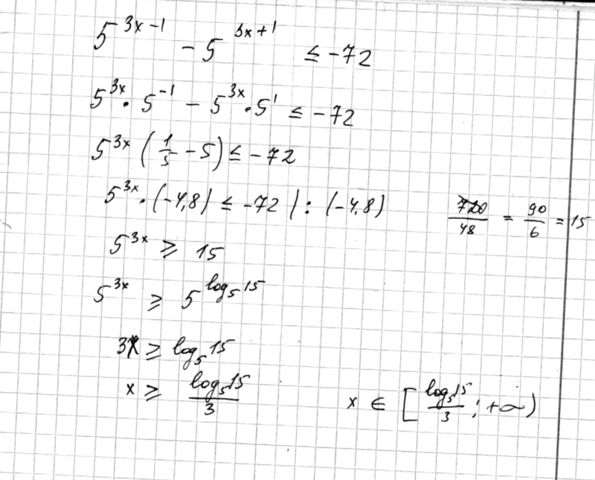 5^{3x-1} - 5^{3x+1} ≤ -72
5^{3x} · 5^{-1} - 5^{3x} · 5^{1} ≤ -72
5^{3x} (1/5 - 5) ≤ -72
5^{3x} · (-4,8) ≤ -72 | : (-4,8)
720/48 = 90/6 = 15
5^{3x} ≥ 15
5^{3x} ≥ 5^{log_5 15}
3x ≥ log_5 15
x ≥ log_5 15 / 3
x ∈ [log_5 15 / 3 ; +∞)